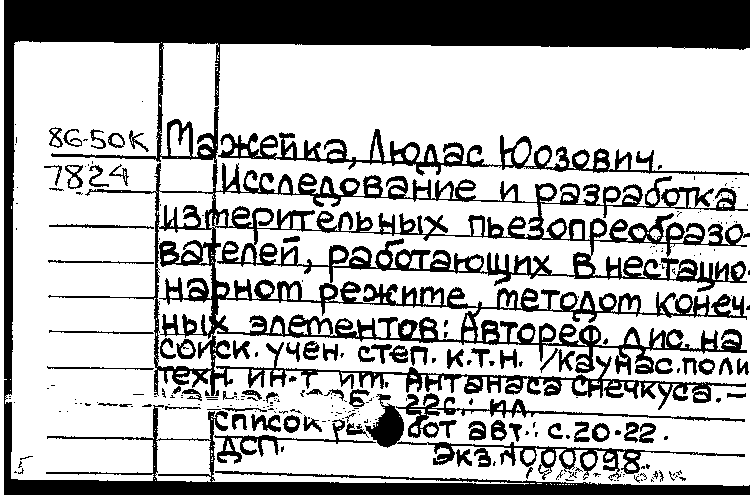 86-50К Мажейка, Людас Юозович.
7824 Исследование и разработка
измерительных пьезопреобразо-
вателей, работающих в нестацио-
нарном режиме, методом конеч-
ных элементов: Автореф. дис. на
соиск. учен. степ. к.т.н. /Каунас.поли
техн. ин-т им. Антанаса Снечкуса.-
22с.: ил.
список работ авт.: с.20-22.
ДСП. Экз.N000098.
5